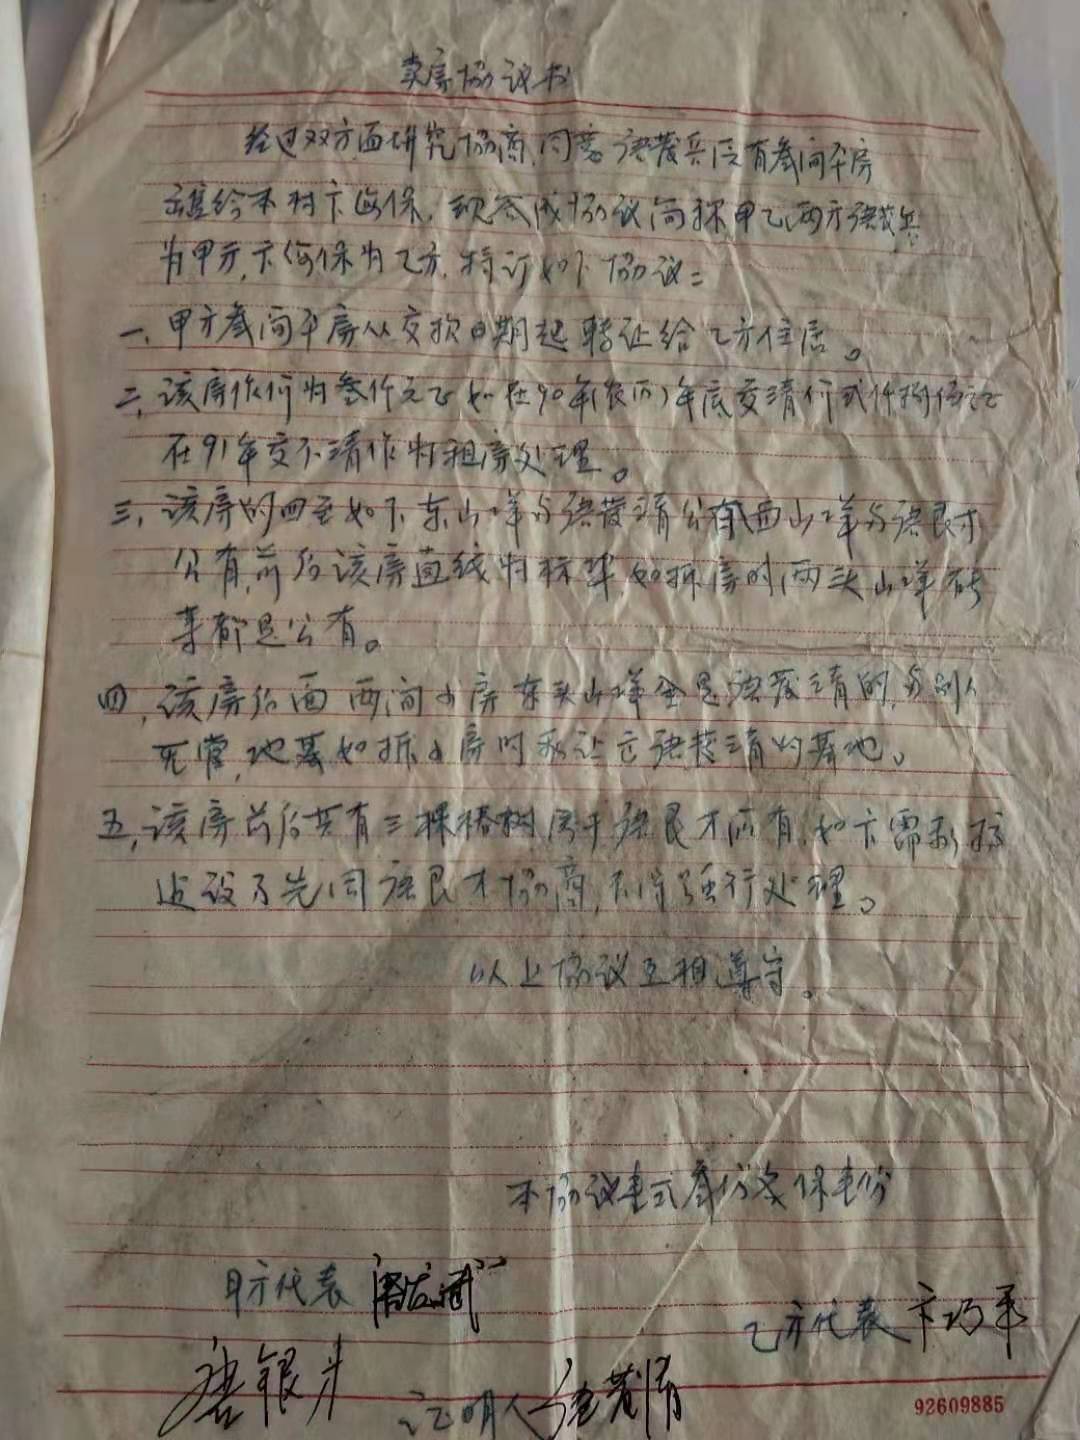 卖房协议书
经过双方面研究协商,同意唐发兵原有叁间平房
售给本村卞海保,现签成协议简称甲乙两方唐发兵
为甲方,卞海保为乙方,特订如下协议:
一、甲方叁间平房从交款日期起转让给乙方住居。
二、该房作价为叁仟元正如在90年(农历)年底交清价
在91年交不清作为租房处理。
三、该房的四至如下东山墙与唐发清公有西山墙与唐银才
公有,前后该房直线为标准,如拆房时两头山墙砖
草都是公有。
四、该房后面两间小房东头山墙全是唐发清的,与别人
无关,地基如拆小房时永让唐发清的基地。
五、该房前后共有三棵椿树属于唐银才所有,如卞需
建设了先同唐银才协商,不得强行处理。
以上协议互相遵守。
本协议壹式叁份各保壹份
甲方代表
乙方代表 卞巧平
唐银才 证明人 唐发清
92609885